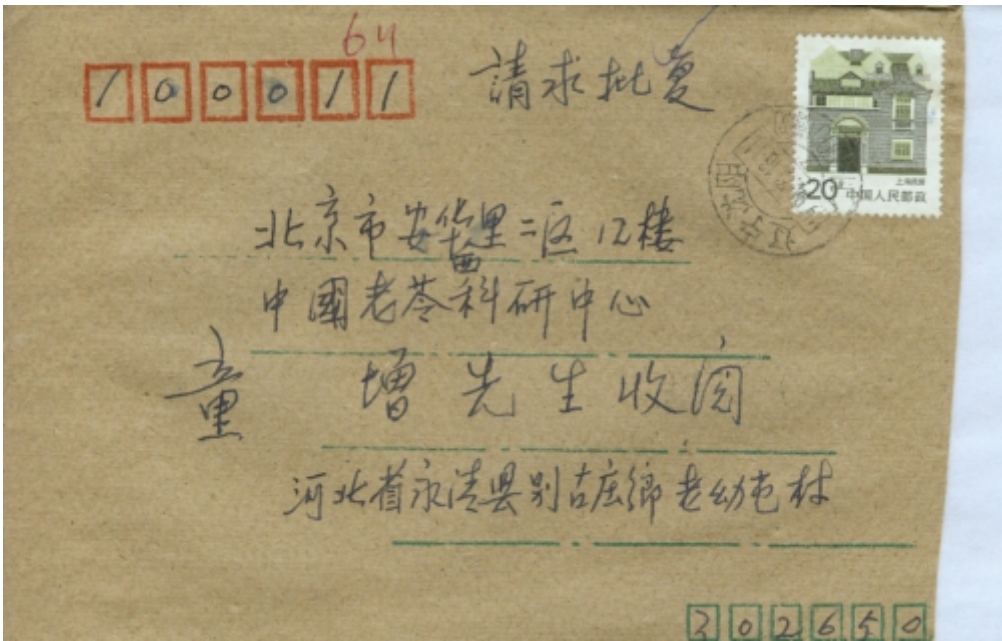 64
100011
請求批复
上海民居
20分
中国人民邮政
北京市安华西里二区12楼
中國老苓科研中心
童增先生收阅
河北省永清县别古庄鄉老幼屯村
302650